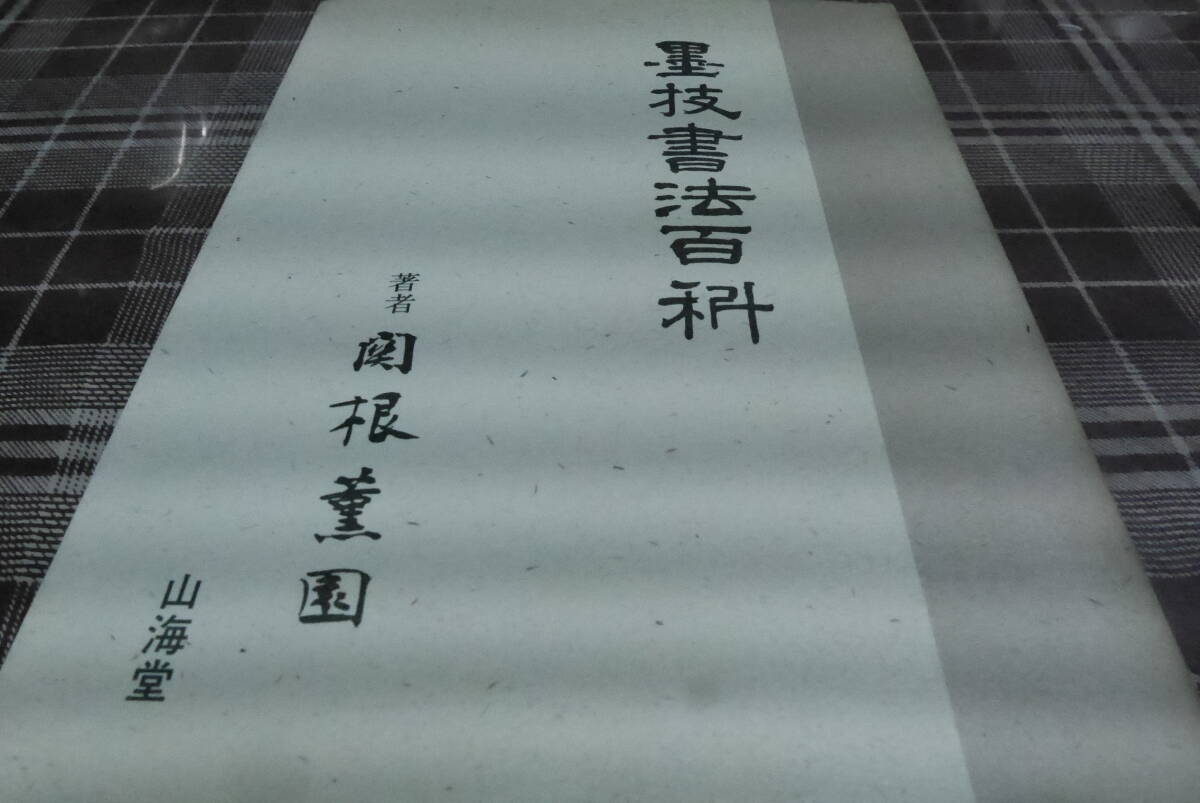 墨技書法百科
著者 関根薫園
山海堂